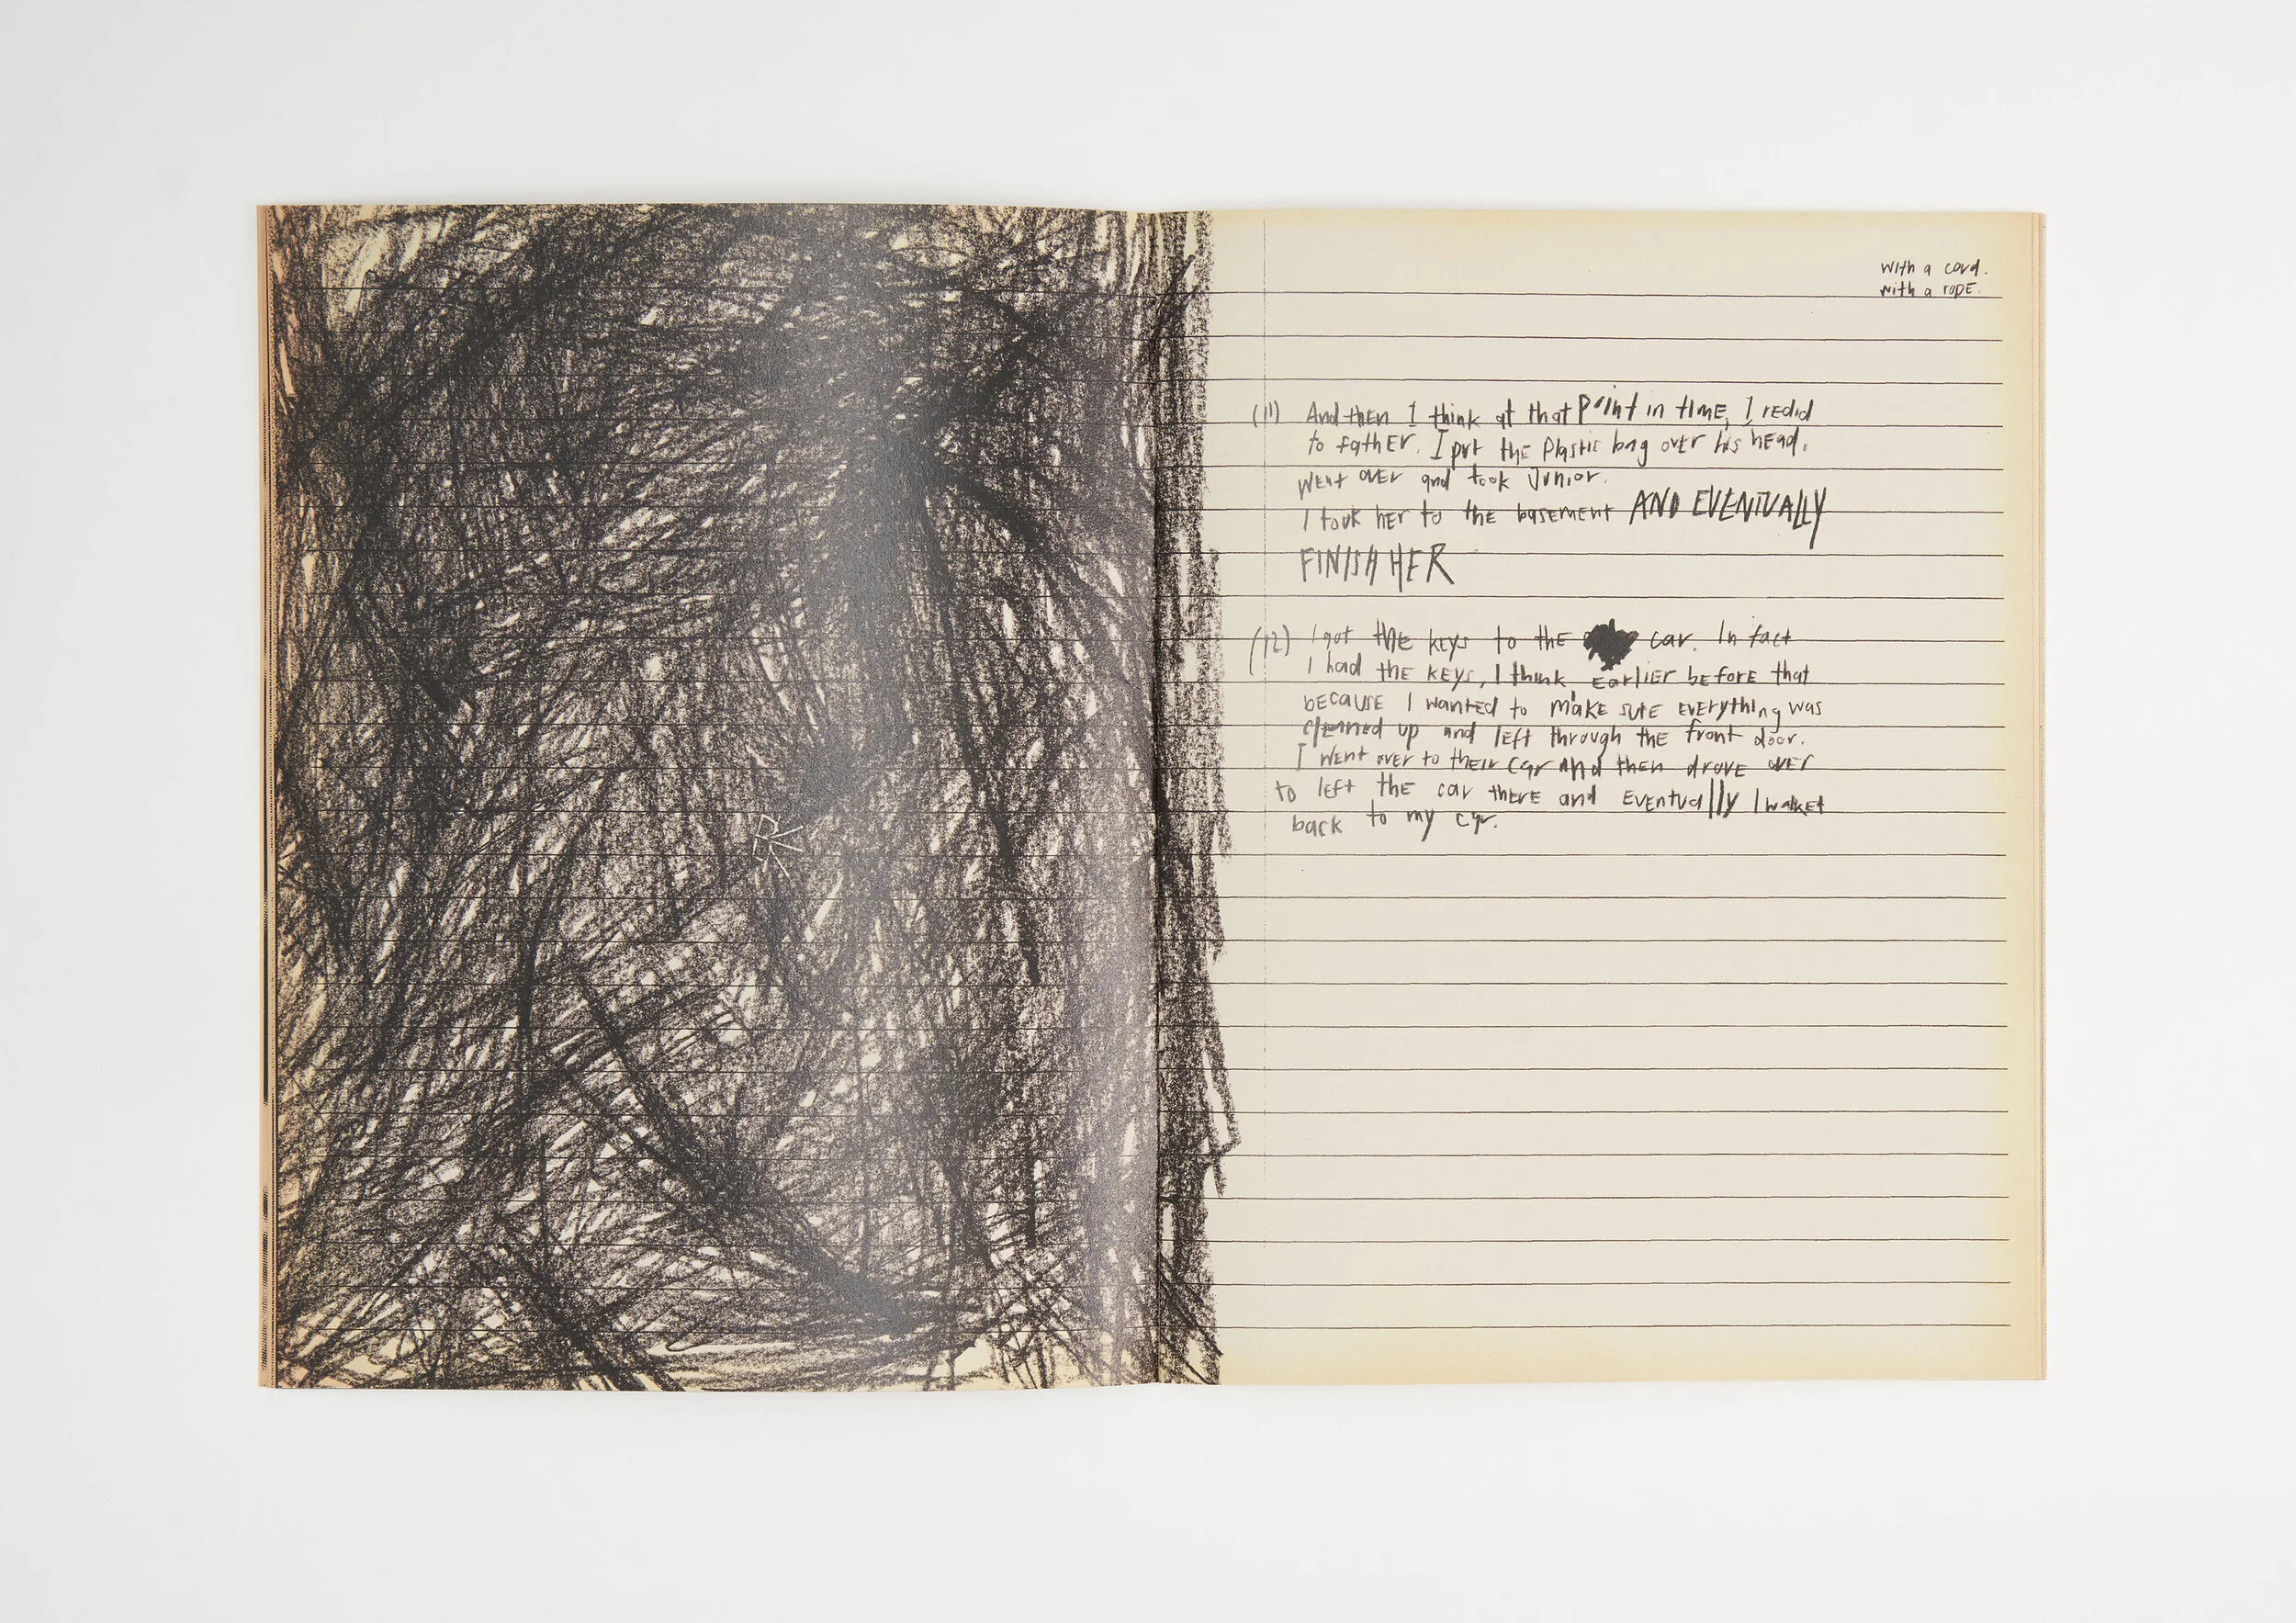 with a cord.
with a rope.
(11) And then I think at that Point in time, I redid
to father. I put the plastic bag over his head.
Went over and took Junior.
I took her to the basement AND EVENTUALLY
FINISH HER
(12) I got the keys to the car. In fact
I had the keys, I think earlier before that
because I wanted to make sure everything was
cleaned up and left through the front door.
I went over to their car and then drove over
to left the car there and eventually I walket
back to my car.